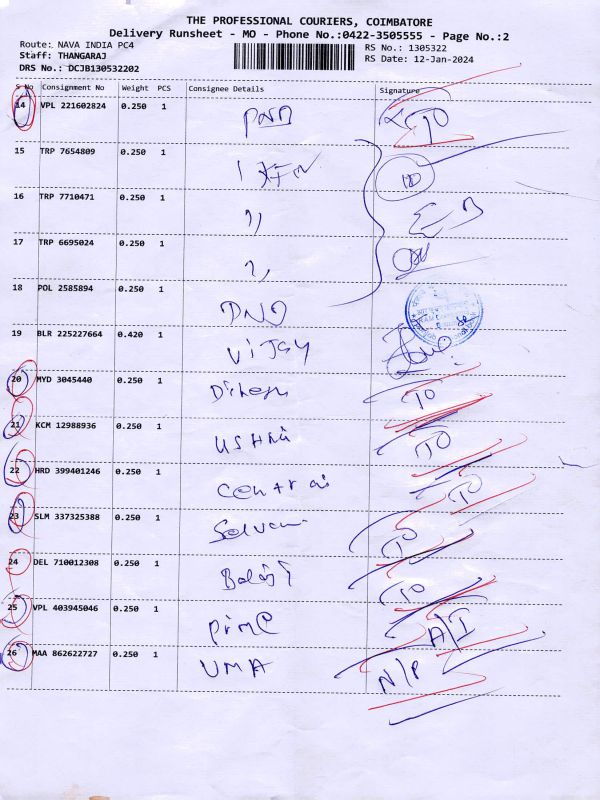 THE PROFESSIONAL COURIERS, COIMBATORE
Delivery Runsheet - MO - Phone No.:0422-3505555 - Page No.:2
Route: NAVA INDIA PC4 RS No.: 1305322
Staff: THANGARAJ RS Date: 12-Jan-2024
DRS No.: DCJB130532202
S No Consignment No Weight PCS Consignee Details Signature
14 VPL 221602824 0.250 1 TO
15 TRP 7654809 0.250 1
16 TRP 7710471 0.250 1 "
17 TRP 6695024 0.250 1 "
18 POL 2585894 0.250 1
19 BLR 225227664 0.420 1 VIJAY
20 MYD 3045440 0.250 1 TO
21 KCM 12988936 0.250 1 USHA TO
22 HRD 399401246 0.250 1 TO
23 SLM 337325388 0.250 1 TO
24 DEL 710012308 0.250 1 Balaji TO
25 VPL 403945046 0.250 1 A/I
26 MAA 862622727 0.250 1 UMA N/P